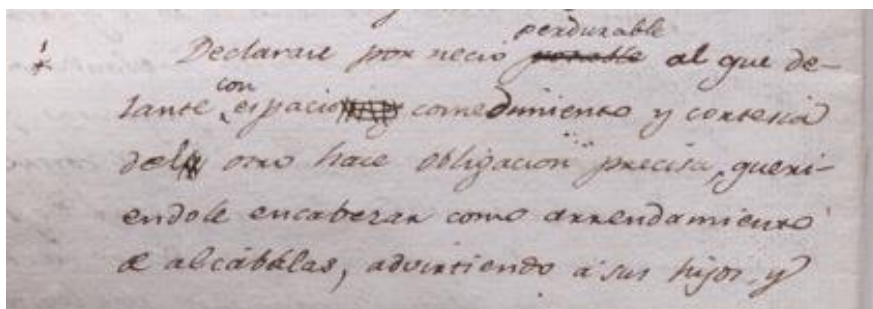 perdurable
Declarase por necio ponable al que de-
con
lante espacio comedimiento y cortesia
del otro hace obligacion precisa, queri-
endole encabezar como arrendamiento
de alcabalas, advirtiendo a sus hijos, y